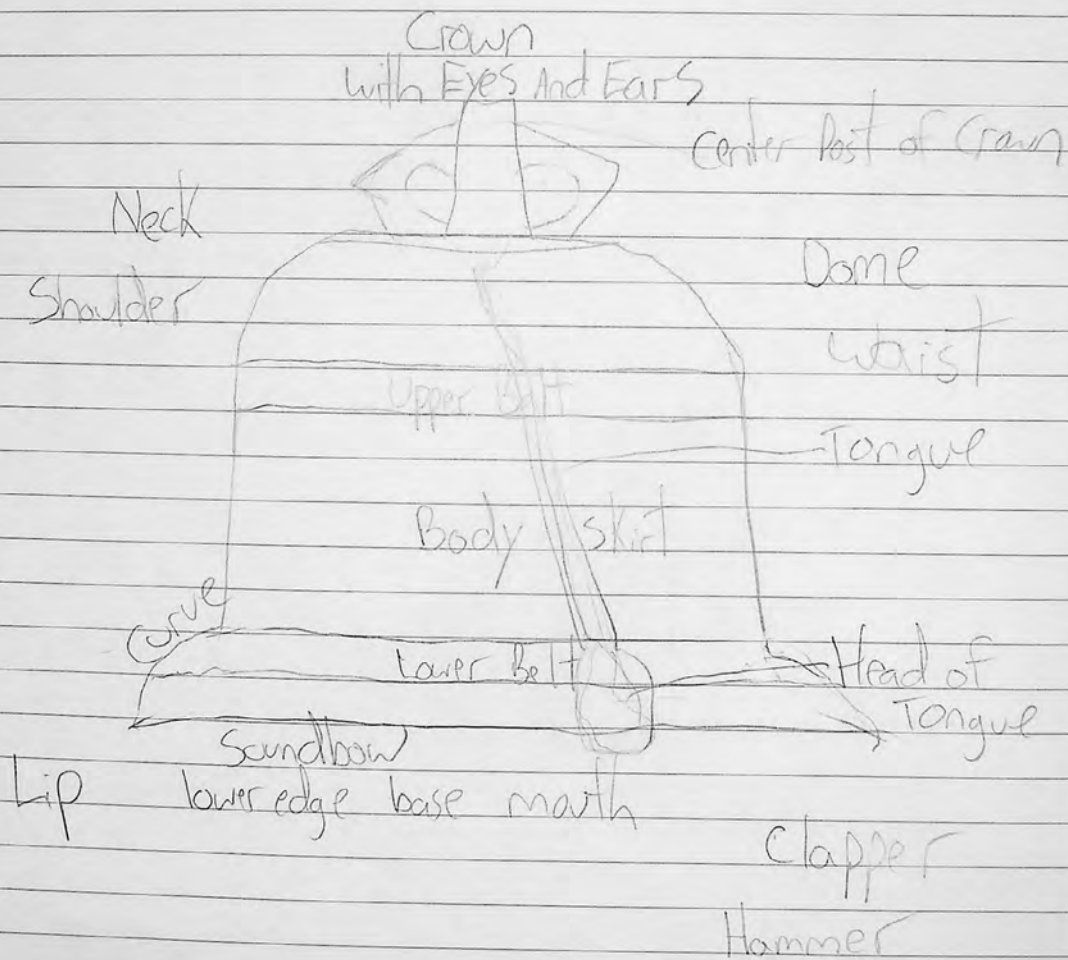 Crown
with Eyes And Ears
Center Post of Crown
Neck
Dome
Shoulder
Waist
Upper Belt
Tongue
Body Skirt
Curve
Lower Belt
Head of
Tongue
Soundbow
Lip
lower edge base mouth
Clapper
Hammer